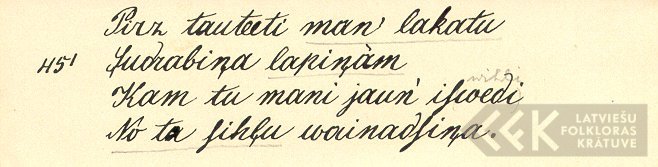 Pirz tauteeti man' lakatu
45' ſudrabiņa lapiņàm
wihli
Kam tu mani jaun' iſwedi
No ta ſihļu wainadſiņa.
LATVIEŠU
FOLKLORAS
KRĀTUVE